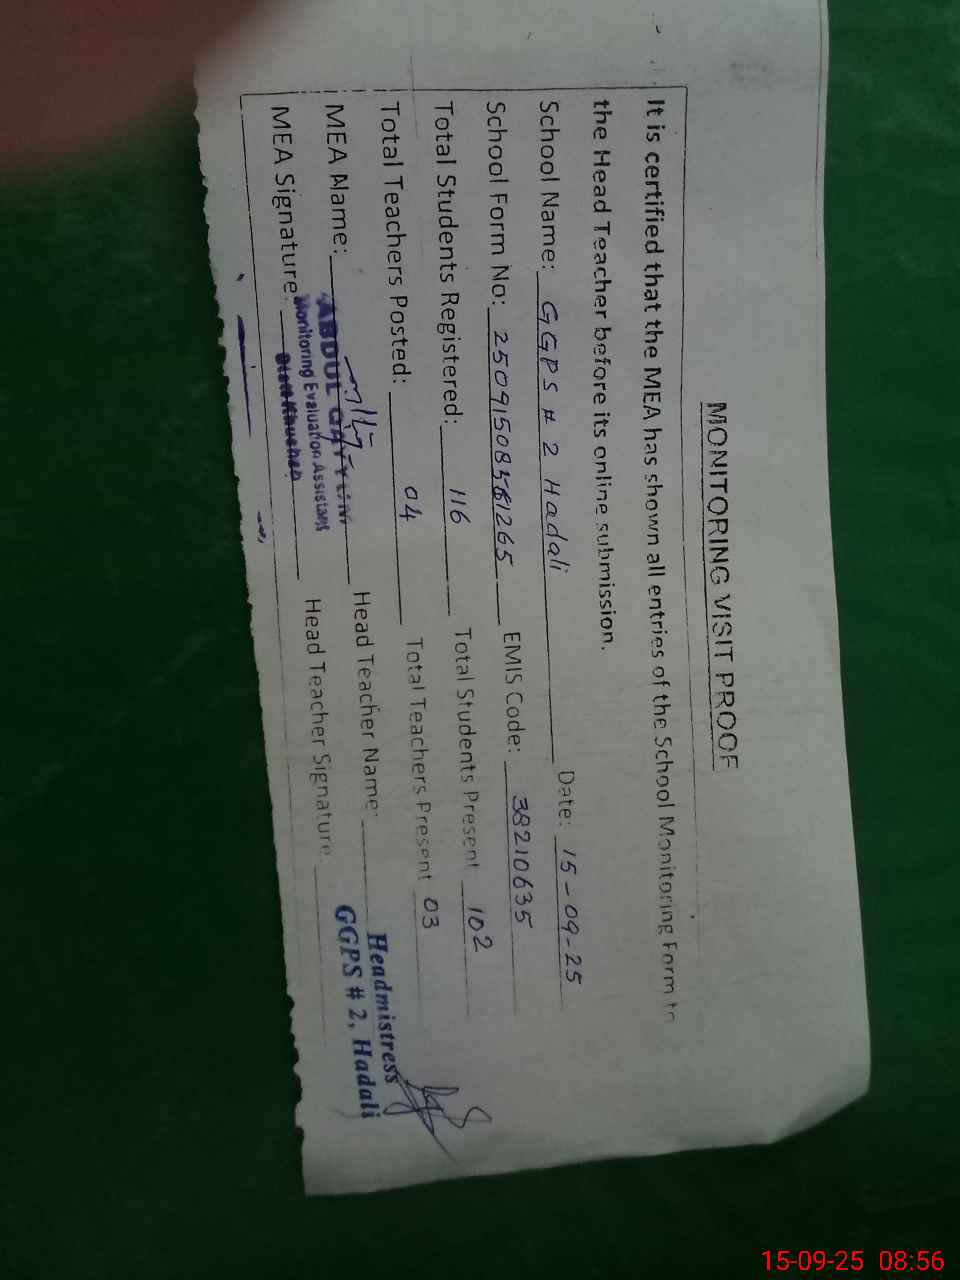 MONITORING VISIT PROOF
It is certified that the MEA has shown all entries of the School Monitoring Form to
the Head Teacher before its online submission.
School Name: GGPS # 2 Hadali Date: 15-09-25
School Form No: EMIS Code: 38210635
Total Students Registered: 116 Total Students Present 102
Total Teachers Posted: 04 Total Teachers Present 03
MEA Name: ABDUL QAYYUM Head Teacher Name: Headmistress
Monitoring Evaluation Assistant GGPS # 2, Hadali
MEA Signature: Khushab Head Teacher Signature:
15-09-25 08:56